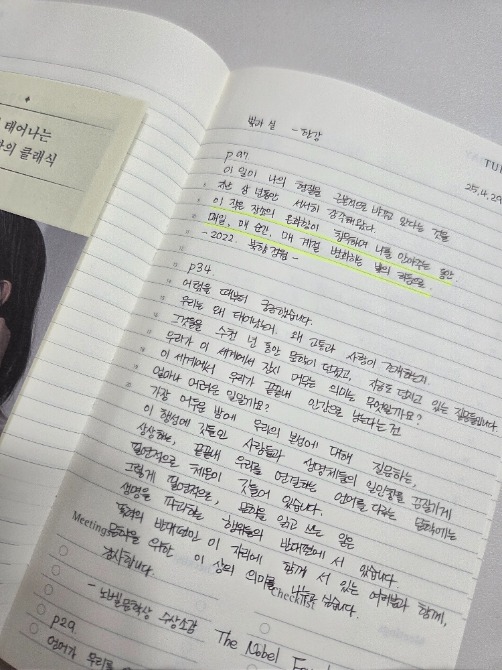 태어나는
의 클래식
빛과 실 - 한강
TUE
25.4.29
p97
이 일이 나의 형질을 근본적으로 바꾸고 있다는 것을
지난 삼 년동안 서서히 감각해왔다.
이 작은 장소의 온화함이 침묵하며 나를 안아주는 동안
매일, 매 순간, 매 계절 변화하는 빛의 리듬으로.
- 2022. 북향 정원 -
p34
어렸을 때부터 궁금했습니다.
우리는 왜 태어났는지. 왜 고통과 사랑이 존재하는지.
그것들은 수천 년 동안 문학이 던졌고, 지금도 던지고 있는 질문들입니다.
우리가 이 세계에 잠시 머무는 의미는 무엇일까요?
이 세계에서 우리가 끝끝내 인간으로 남는다는 건
얼마나 어려운 일일까요?
가장 어두운 밤에 우리의 본성에 대해 질문하는,
이 행성에 깃들인 사람들과 생명체들의 일인칭을 끈질기게
상상하는, 끝끝내 우리를 연결하는 언어를 다루는 문학에는
필연적으로 체온이 깃들어 있습니다.
그렇게 필연적으로, 문학을 읽고 쓰는 일은
생명을 파괴하는 행위들의 반대편에 서 있습니다.
폭력의 반대편인 이 자리에 함께 서 있는 여러분과 함께,
Meetings
문학을 위한 이 상의 의미를 나누고 싶습니다.
Checklist
감사합니다.
- 노벨문학상 수상소감 The Nobel
p29.
언어가 우리를